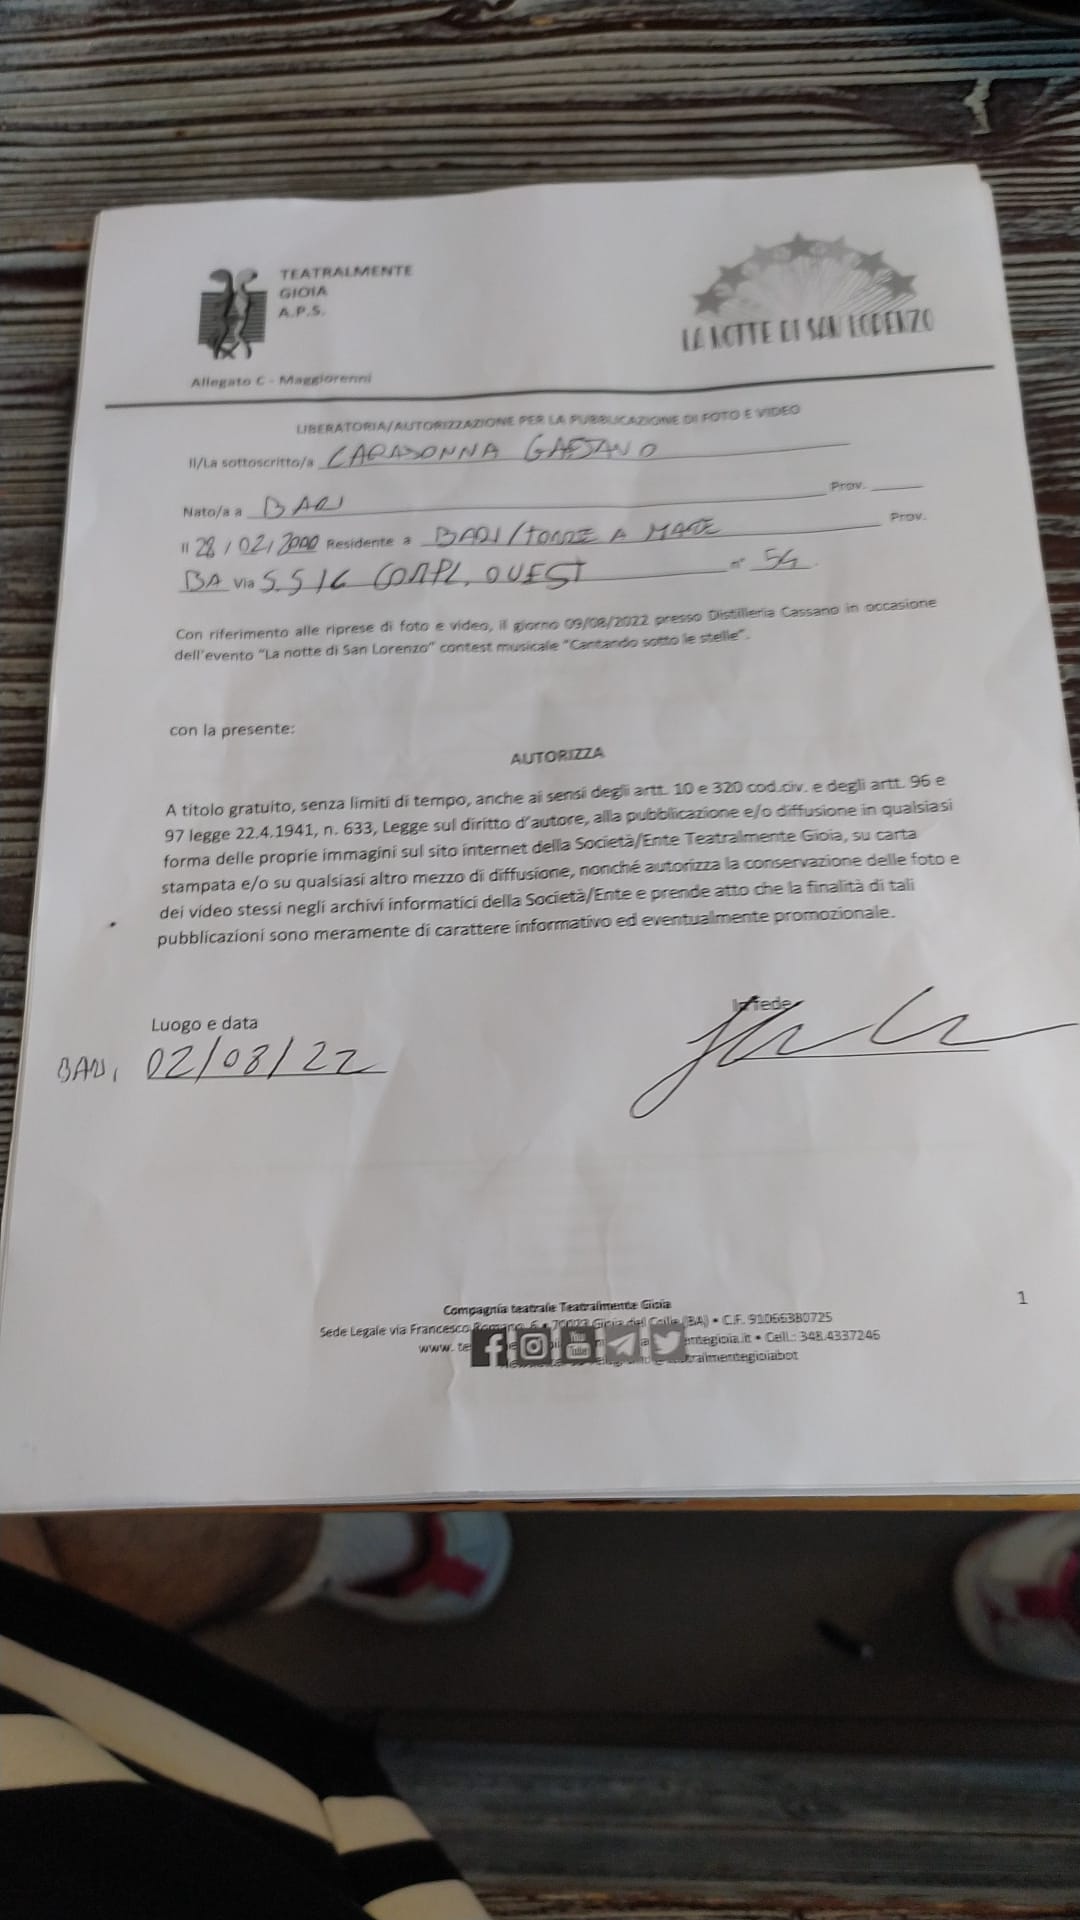 TEATRALMENTE
GIOIA
A.P.S.
LA NOTTE DI SAN LORENZO
Allegato C - Maggiorenni
LIBERATORIA/AUTORIZZAZIONE PER LA PUBBLICAZIONE DI FOTO E VIDEO
Il/La sottoscritto/a CARADONNA GAETANO
Nato/a a BARI Prov.
Il 28/02/2000 Residente a BARI/TORRE A MARE Prov.
BA Via S.S 16 COMPL. OVEST n° 54
Con riferimento alle riprese di foto e video, il giorno 09/08/2022 presso Distilleria Cassano in occasione
dell'evento "La notte di San Lorenzo" contest musicale "Cantando sotto le stelle".
con la presente:
AUTORIZZA
A titolo gratuito, senza limiti di tempo, anche ai sensi degli artt. 10 e 320 cod.civ. e degli artt. 96 e
97 legge 22.4.1941, n. 633, Legge sul diritto d'autore, alla pubblicazione e/o diffusione in qualsiasi
forma delle proprie immagini sul sito internet della Società/Ente Teatralmente Gioia, su carta
stampata e/o su qualsiasi altro mezzo di diffusione, nonché autorizza la conservazione delle foto e
dei video stessi negli archivi informatici della Società/Ente e prende atto che la finalità di tali
pubblicazioni sono meramente di carattere informativo ed eventualmente promozionale.
Luogo e data In fede
BARI, 02/08/22
1
Compagnia teatrale Teatralmente Gioia
Sede Legale via Francesco Romano, 6 • 70023 Gioia del Colle (BA) • C.F. 91066380725
www. te entegioia.it • Cell.: 348.4337246
You Tube
tralmentegioiabot